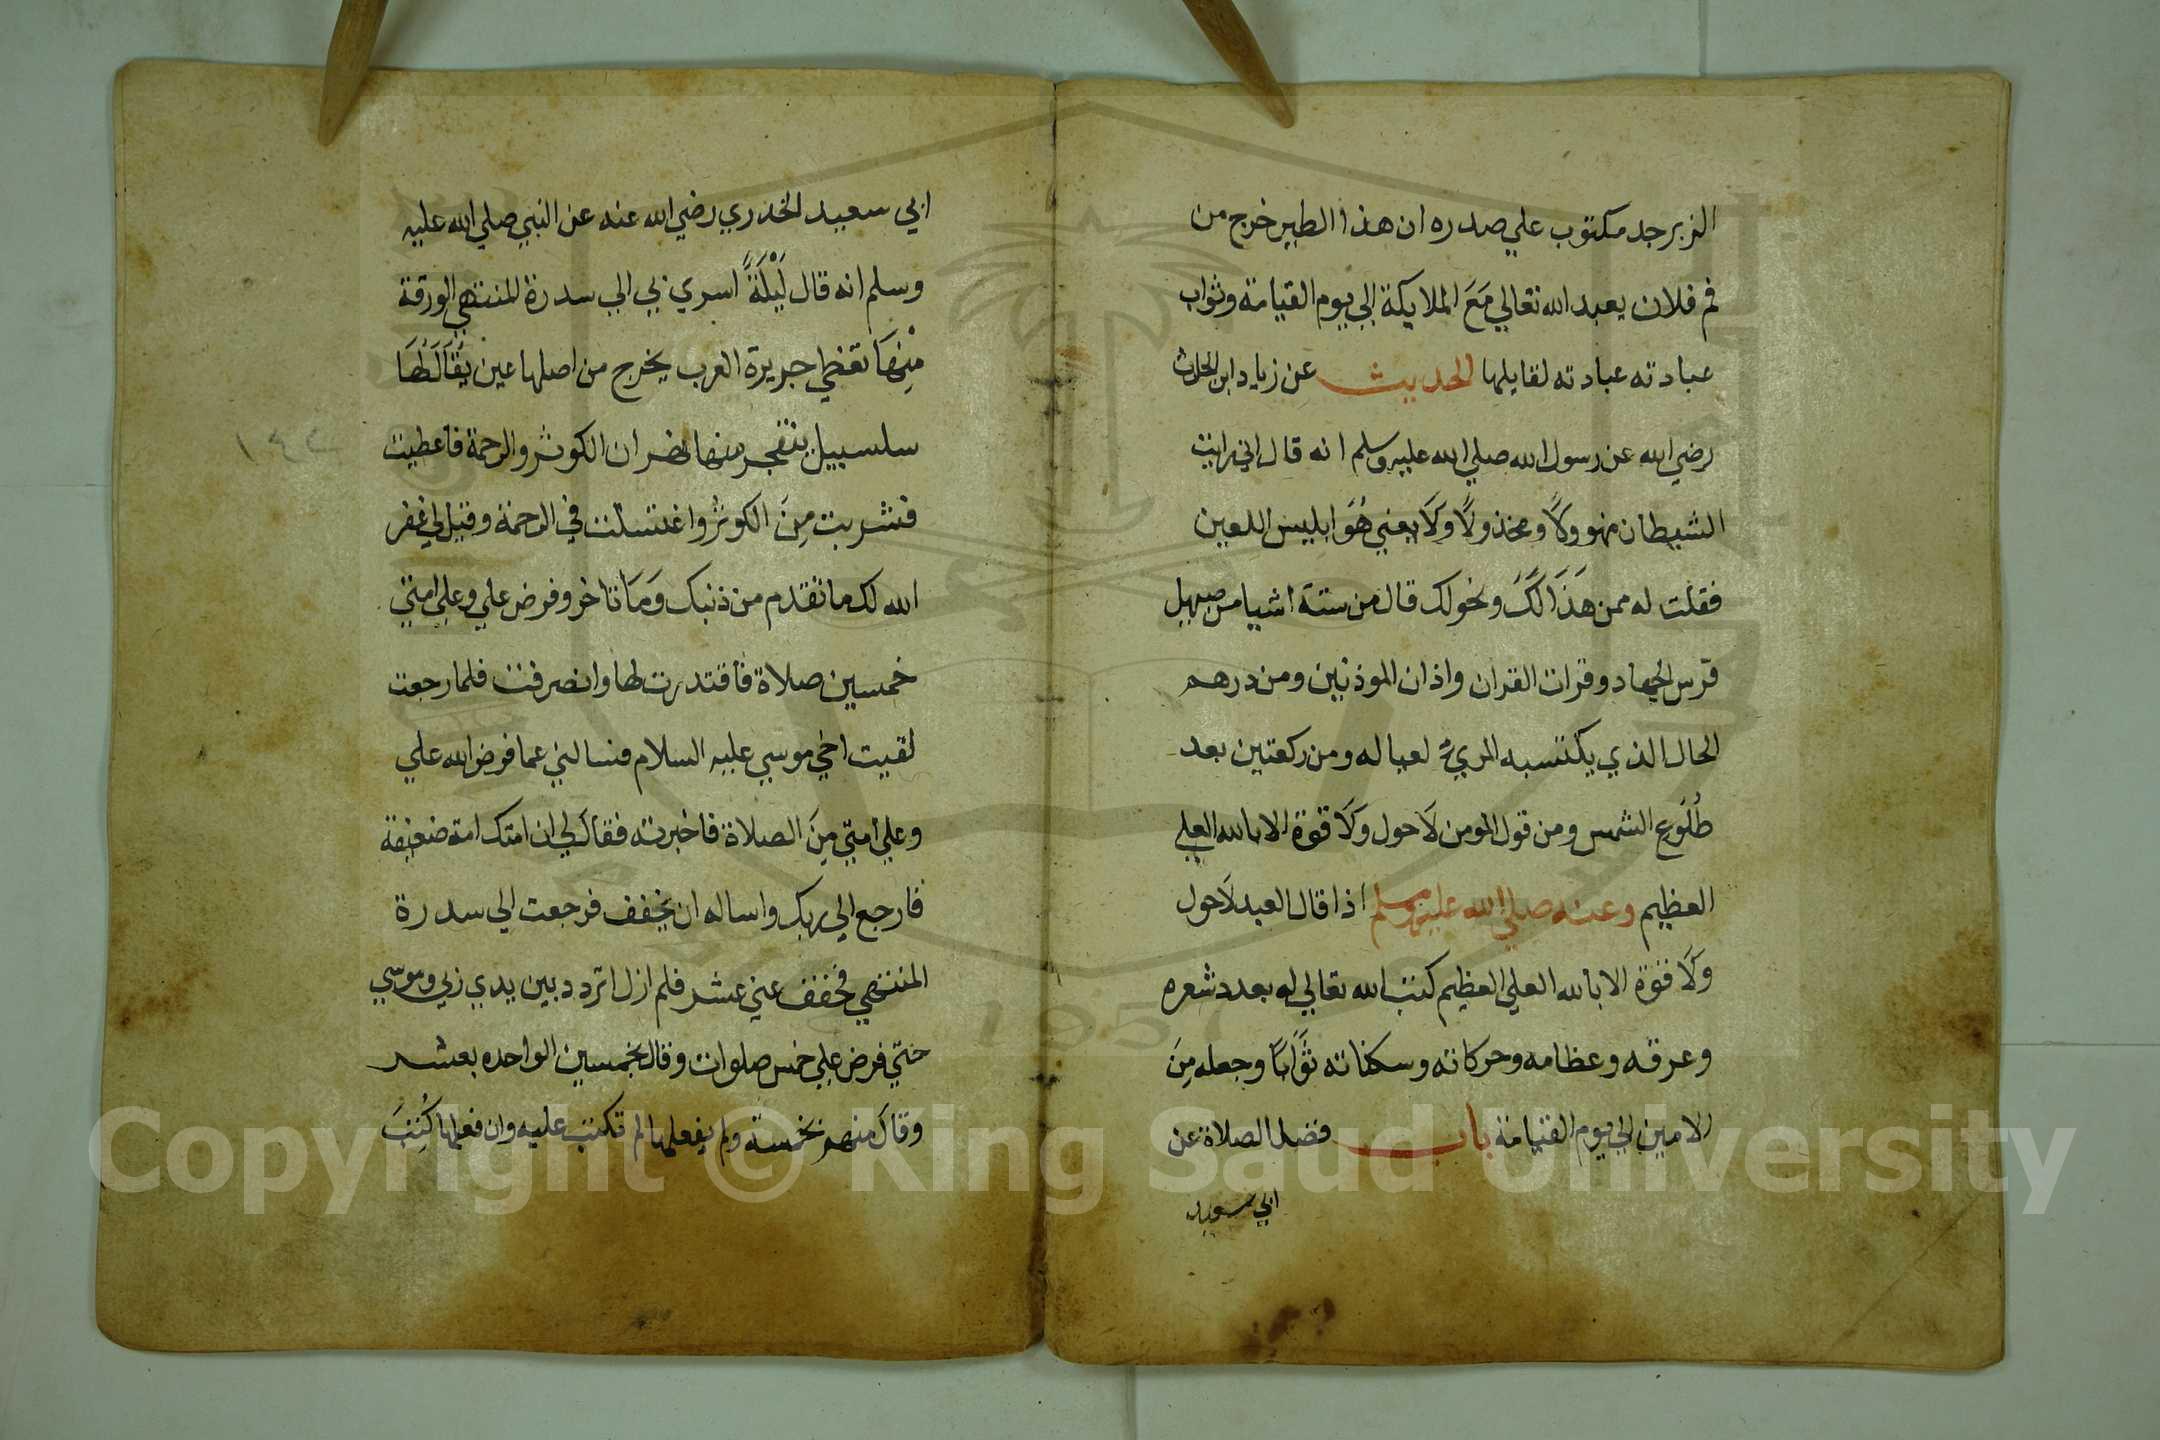 الزبرجد مكتوب علي صدره ان هذا الطير خرج من
فم فلان يعبد الله تعالي مَعَ الملايكة الي يوم القيامة وثواب
عبادته عبادته لقايلها الحديث عن زياد ابن الحارث
رضي الله عن رسول الله صلي الله عليه وسلم انه قال اني رايت
الشيطان منهوولاً ومخذولاً ولَا يعني هُوَ ابليس اللعين
فقلت له ممن هَذَا لَكَ ونحولك قال من ستة اشيا من صهيل
فرس الجهاد وقرات القران واذان الموذنين ومن درهم
الحال الذي يكتسبه المريءُ لعياله ومن ركعتين بعد
طُلُوع الشمس ومن قول المومن لَاحول ولَا قوة الا بالله العلي
العظيم وعنه صلي الله عليه وسلم اذا قال العبد لَاحول
ولَا قوة الا بالله العلي العظيم كتب الله تعالي له بعدد شعره
وعرقه وعظامه وحركاته وسكناته ثَوَابًا وجعله مِنَ
الامنين الي يوم القيامة باب فضل الصلاة عن
ابي سعيد
ابي سعيد الخدري رضي الله عنه عن النبي صلي الله عليه
وسلم انه قال لَيْلَةً اسري بي الي سدرة المنتهي الورقة
مِنْهَا تغطي جزيرة العرب يخرج من اصلها عين يُقَالُ لَهَا
سلسبيل ينفجر منها نهران الكوثر والرحمة فاعطيت
فشربت مِنَ الكوثر واغتسلت في الرحمة وقيل لي غفر
الله لك ما تقدم من ذنبك وَمَا تاخر وفرض علي وعلي امتي
خمسين صلاة فاقتدرت لها وانصرفت فلما رجعت
لقيت اخي موسي عليه السلام فسالني عما فرض الله علي
وعلي امتي مِنَ الصلاة فاخبرته فقال لي ان امتك امة ضعيفة
فارجع الي ربك واساله ان يخفف فرجعت الي سدرة
المنتهي فخفف عني عشر فلم ازل اتردد بين يدي ربي وموسي
حتي فرض علي خمس صلوات وقال بخمسين الواحده بعشر
وقالَ منهم بخمسة ولم يفعلها لم تكتب عليه وان فعلها كُتِبَ
١٤٢
Copyright © King Saud University
1957